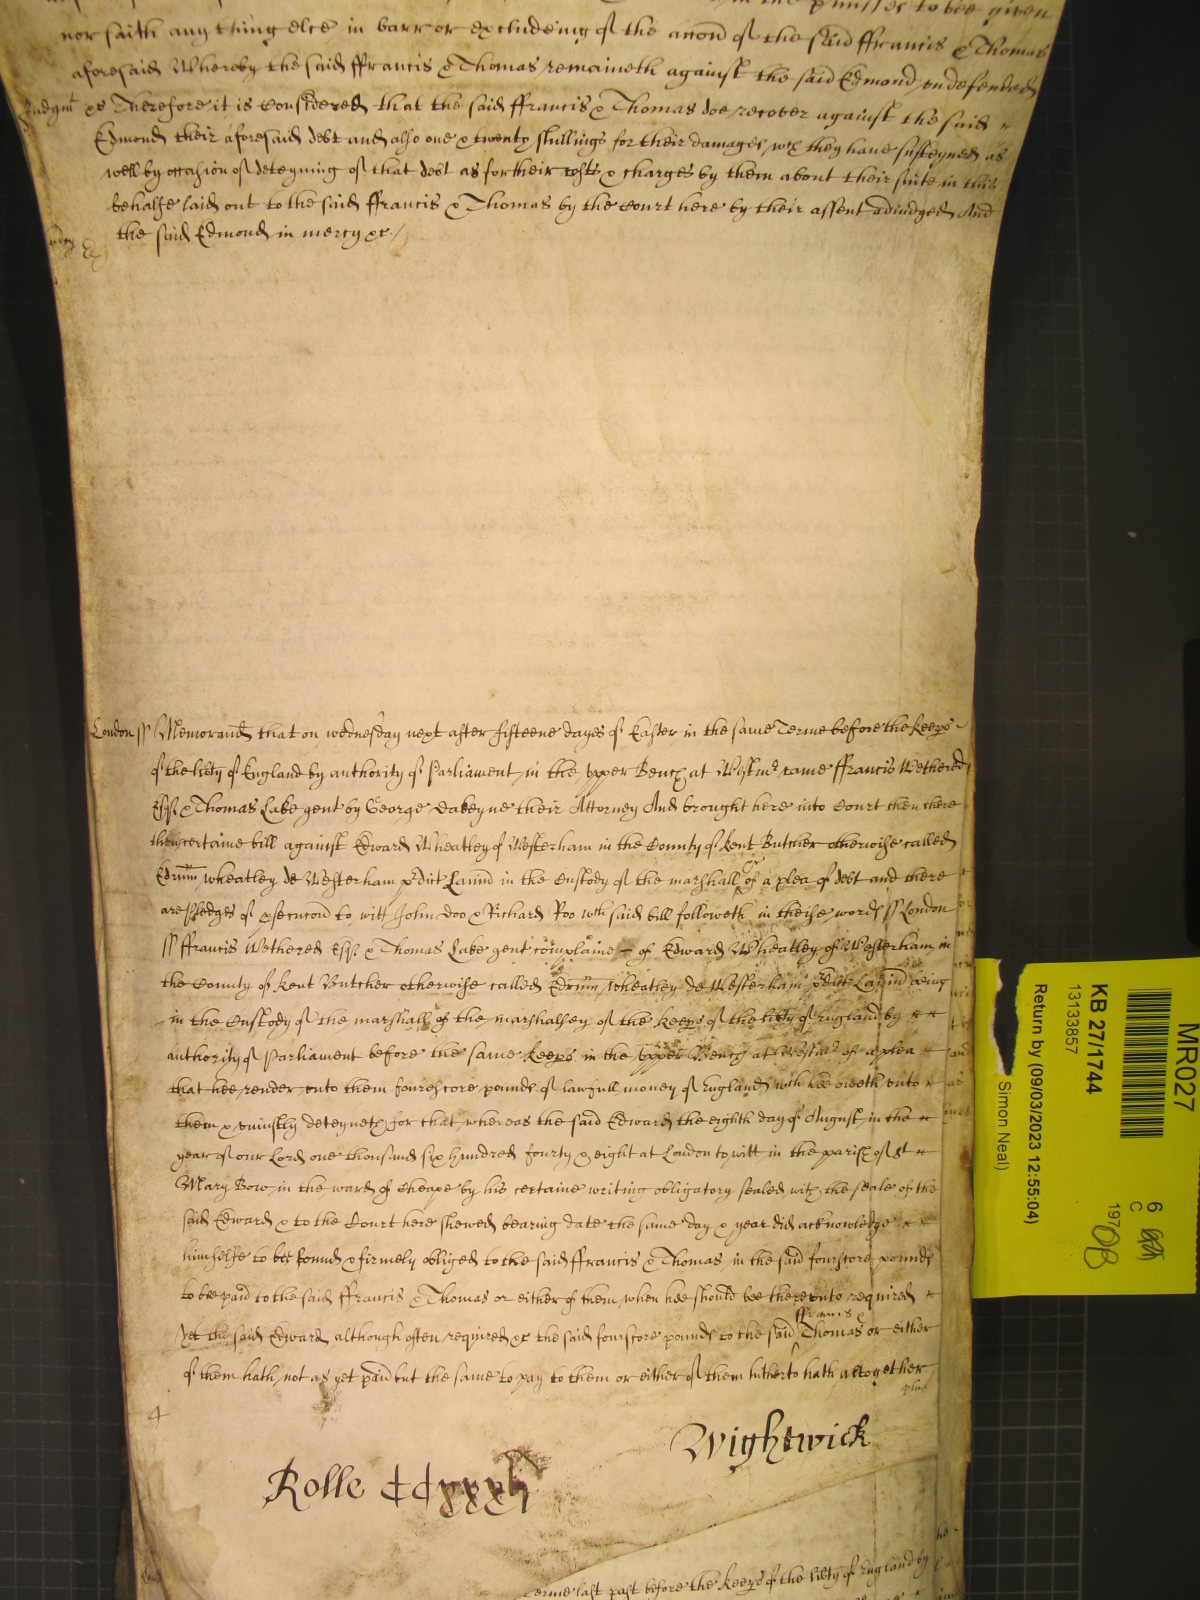 in the p'misses to bee given
nor saith any thing else in barr or excludeing of the accon of the said ffrancis & Thomas
aforesaid Whereby the said ffrancis & Thomas remaineth against the said Edmond undefended
Judgmt &c Therefore it is Considered that the said ffrancis & Thomas doe recover against the said
Edmond their aforesaid debt and also one & twenty shillings for their damages wch they have susteyned as
well by occasion of deteyning of that debt as for their costs & charges by them about their suite in this
behalfe laid out to the said ffrancis & Thomas by the Court here by their assent adiudged And
mercy the said Edmond in mercy &c /
London ss Memorand that on wednesday next after fifteene dayes of Easter in the same Terme before the keeps
of the liberty of England by authority of Parliament in the upper Bench at Westmr came ffrancis Wethered
Esqr & Thomas Lake gent by George Dakeyne their Attorney And brought here into Court then there
their certaine bill against Edward Wheatley of Westerham in the County of Kent Butcher otherwise called
Edrum wheatley de Westerham pdict Lanind in the Custody of the marshall &c of a plea of debt and there
are pledges of psecucon to witt John Doo & Richard Roo wch said bill followeth in theise words ss London
ss ffrancis Wethered Esqr & Thomas Lake gent complaine of Edward Wheatley of Westerham in
the County of Kent Butcher otherwise called Edrum wheatley de Westerham pdict Lanind being
in the Custody of the marshall of the marshalsey of the keeps of the liberty of England by
authority of Parliament before the same keeps in the upper Bench at Westmr of a plea
that hee render unto them fourescore pounds of lawfull money of England which hee oweth unto
them & uniustly deteyneth for that whereas the said Edward the eighth day of August in the
year of our Lord one thousand six hundred fourty & eight at London to witt in the parish of St
Mary Bow in the ward of Cheape by his certaine writing obligatory sealed with the seale of the
said Edward & to the Court here shewed bearing date the same day & year did acknowledge
himselfe to bee bound & firmely obliged to the said ffrancis & Thomas in the said fourscore pounds
to bee paid to the said ffrancis & Thomas or either of them when hee should bee thereunto required
ffrancis &
Yet the said Edward although often required &c the said fourscore pounds to the said Thomas or either
of them hath not as yet paid but the same to pay to them or either of them hitherto hath altogether
4
Wightwick
Rolle
Terme last past before the keeps of the liberty of England by
MR027
KB 27/1744
13133857
Return by (09/03/2023 12:55:04)
Simon Neal)
6
C
1970